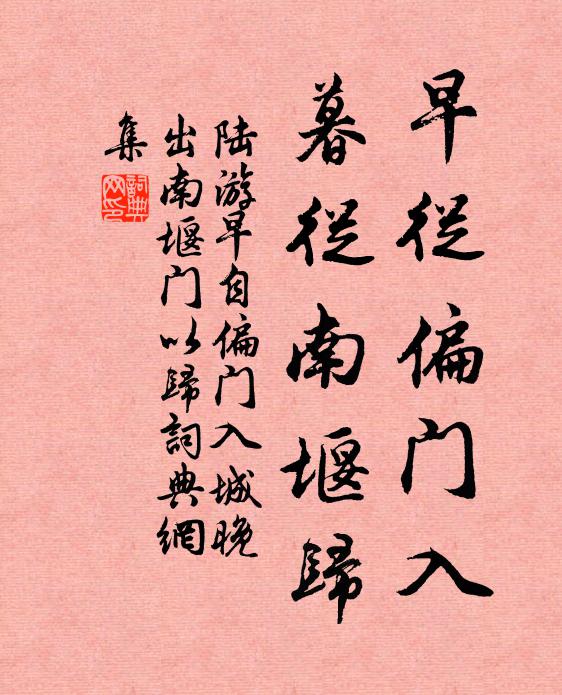 早從偏门入
暮從南堰歸
陆游早自偏门入城晚
出南堰门以歸詞典網
集
詞典
网印